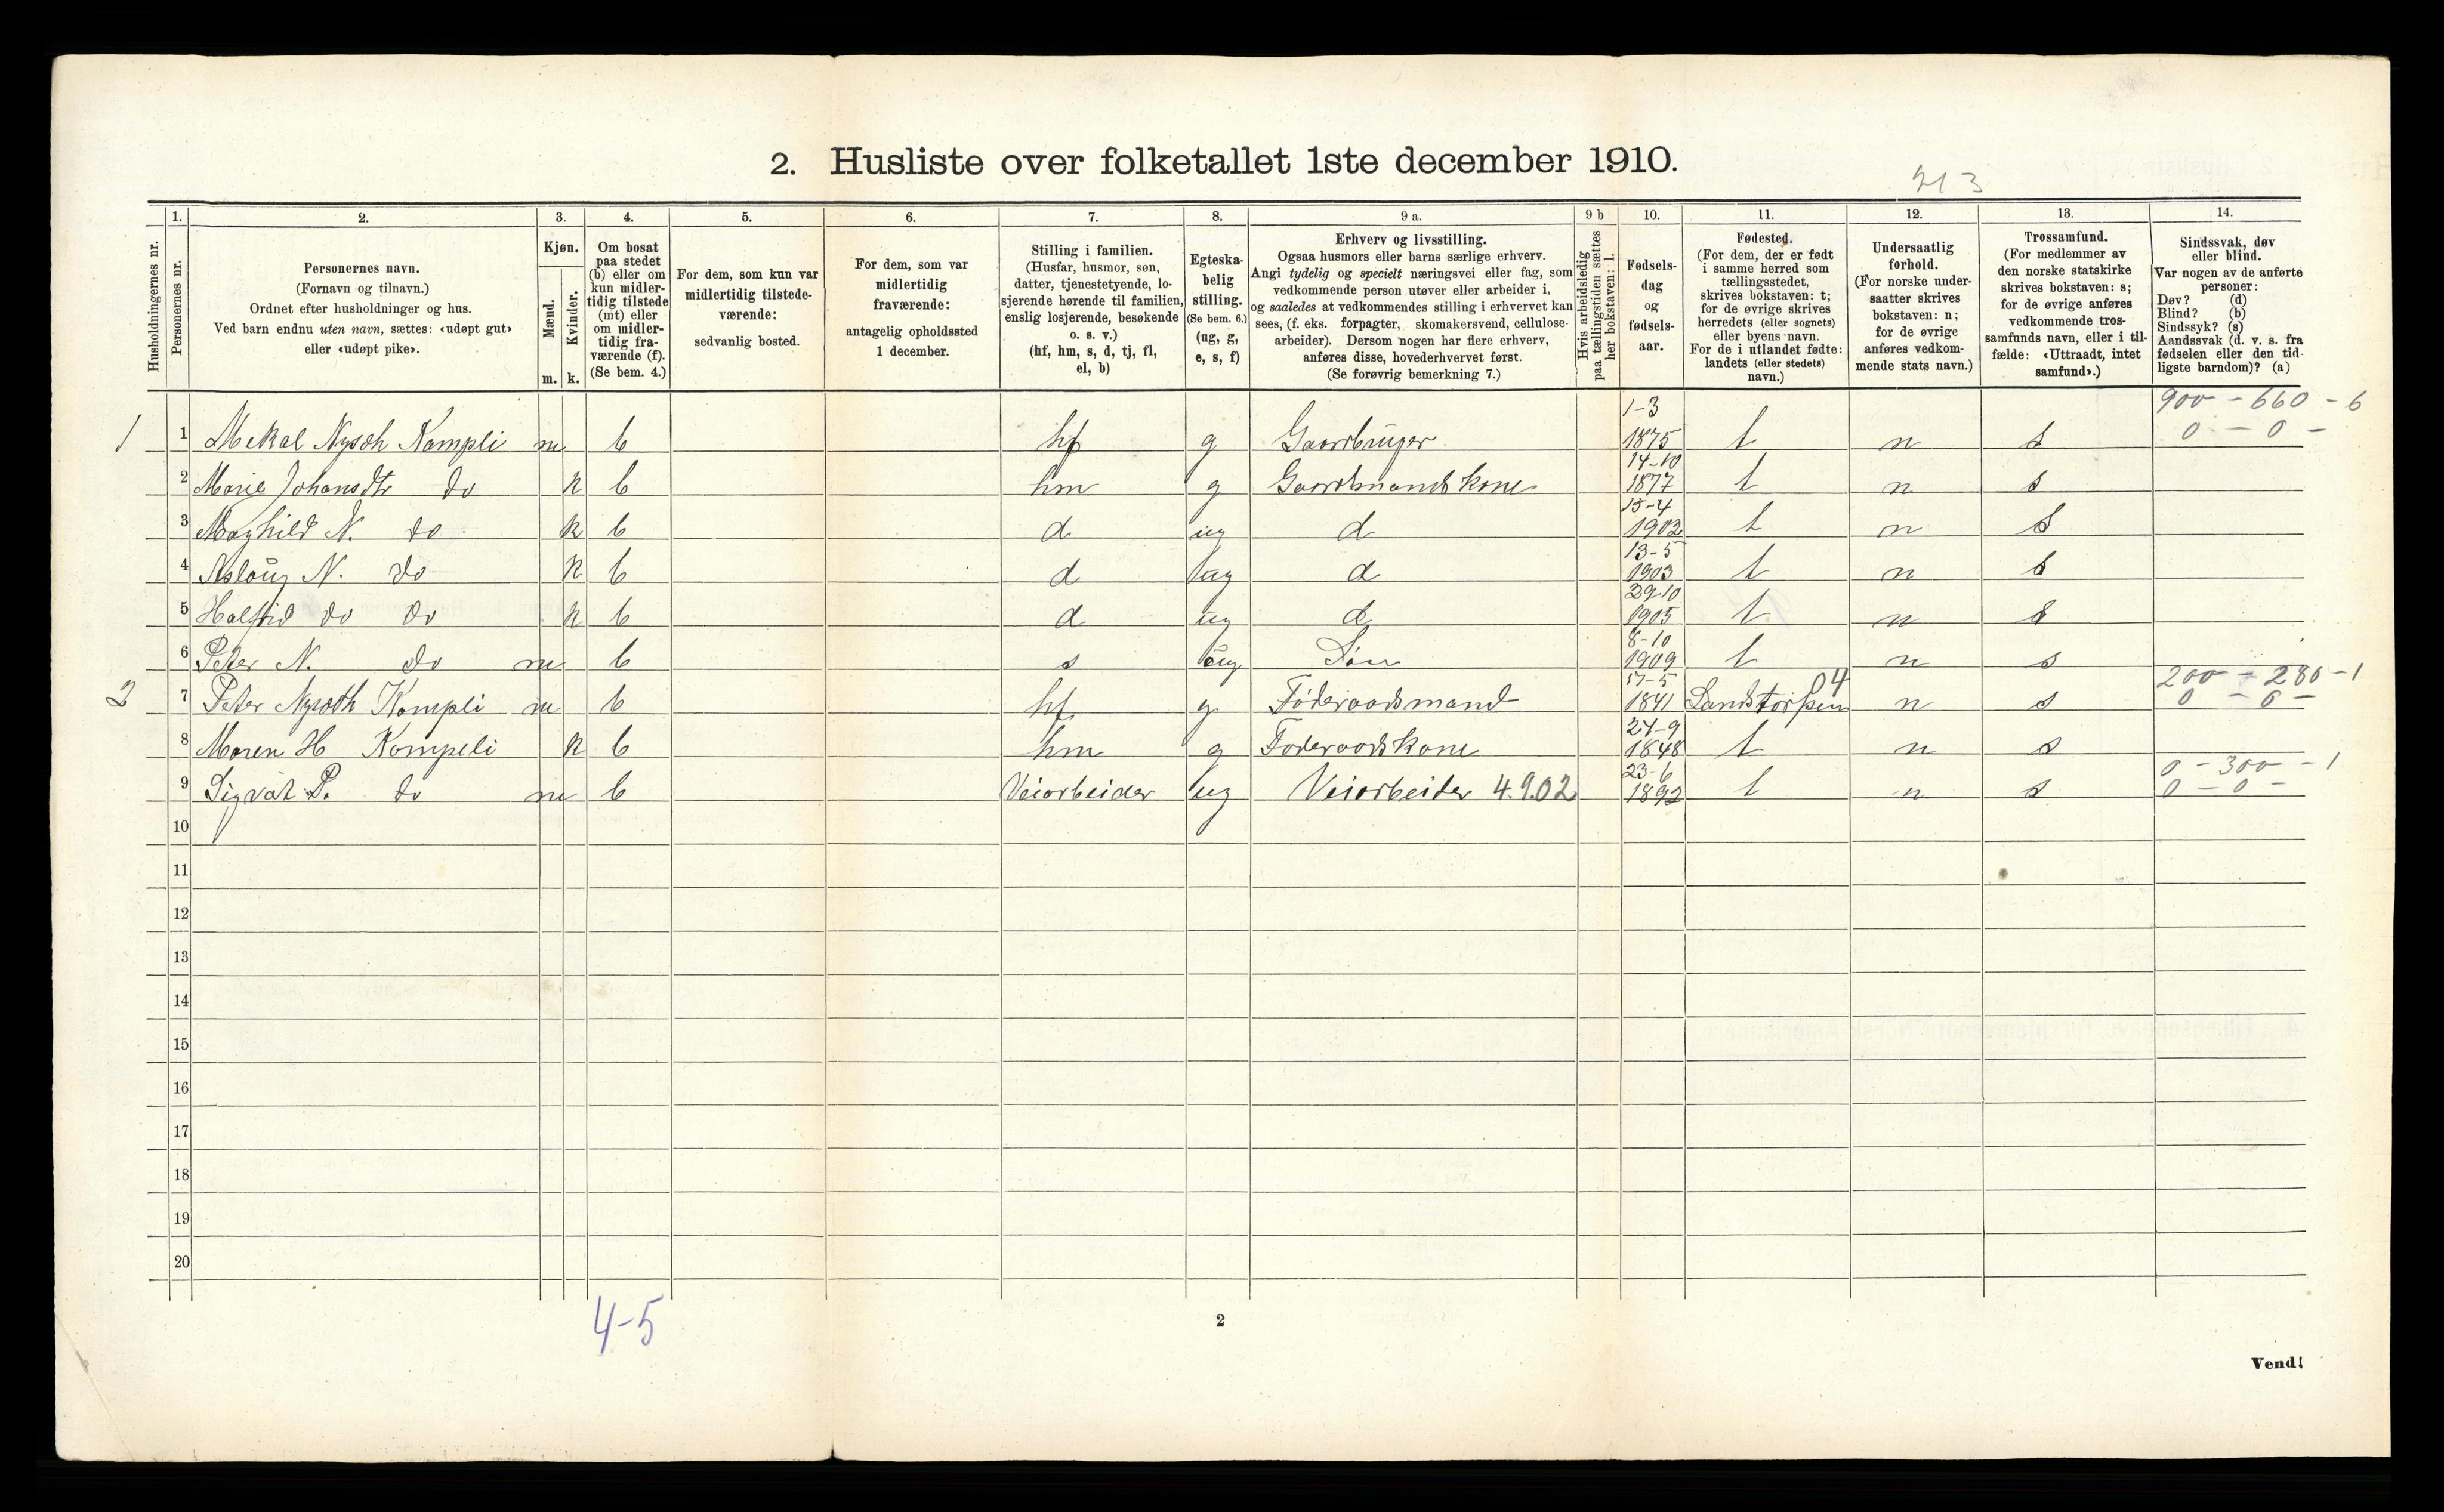 2. Husliste over folketallet 1ste december 1910.
213
1. 2. 3. 4. 5. 6. 7. 8. 9 a. 9 b 10. 11. 12. 13. 14.
Husholdningernes nr.
Personernes nr.
Personernes navn.
(Fornavn og tilnavn.)
Ordnet efter husholdninger og hus.
Ved barn endnu uten navn, sættes: «udøpt gut»
eller «udøpt pike».
Kjøn.
Mænd.
Kvinder.
m. k.
Om bosat
paa stedet
(b) eller om
kun midler-
tidig tilstede
(mt) eller
om midler-
tidig fra-
værende (f).
(Se bem. 4.)
For dem, som kun var
midlertidig tilstede-
værende:
sedvanlig bosted.
For dem, som var
midlertidig
fraværende:
antagelig opholdssted
1 december.
Stilling i familien.
(Husfar, husmor, søn,
datter, tjenestetyende, lo-
sjerende hørende til familien,
enslig losjerende, besøkende
o. s. v.)
(hf, hm, s, d, tj, fl,
el, b)
Egteska-
belig
stilling.
(Se bem. 6.)
(ug, g,
e, s, f)
Erhverv og livsstilling.
Ogsaa husmors eller barns særlige erhverv.
Angi tydelig og specielt næringsvei eller fag, som
vedkommende person utøver eller arbeider i,
og saaledes at vedkommendes stilling i erhvervet kan
sees, (f. eks. forpagter, skomakersvend, cellulose-
arbeider). Dersom nogen har flere erhverv,
anføres disse, hovederhvervet først.
(Se forøvrig bemerkning 7.)
Hvis arbeidsledig
paa tællingstiden sættes
her bokstaven: l.
Fødsels-
dag
og
fødsels-
aar.
Fødested.
(For dem, der er født
i samme herred som
tællingsstedet,
skrives bokstaven: t;
for de øvrige skrives
herredets (eller sognets)
eller byens navn.
For de i utlandet fødte:
landets (eller stedets)
navn.)
Undersaatlig
forhold.
(For norske under-
saatter skrives
bokstaven: n;
for de øvrige
anføres vedkom-
mende stats navn.)
Trossamfund.
(For medlemmer av
den norske statskirke
skrives bokstaven: s;
for de øvrige anføres
vedkommende tros-
samfunds navn, eller i til-
fælde: «Uttraadt, intet
samfund».)
Sindssvak, døv
eller blind.
Var nogen av de anførte
personer:
Døv? (d)
Blind? (b)
Sindssyk? (s)
Aandssvak (d. v. s. fra
fødselen eller den tid-
ligste barndom)? (a)
1-3 900 - 660 - 6
1 1 Mekal Nysæth Kampli m b hf g Gaardbruger 1875 t n s 0 - 0 -
14-10
2 Marie Johansdtr do k b hm g Gaardmandskone 1877 t n s
15-4
3 Maghild N. do k b d ug d 1902 t n s
13-5
4 Aslaug N. do k b d ug d 1903 t n s
29-10
5 do do k b d ug d 1905 t n s
8-10
6 Peter N. do m b s ug Søn 1909 t n s
17-5 04 200 - 280 - 1
2 7 Peter Nysæth Kampli m b hf g Føderaadsmand 1841 n s 0 - 0 -
27-9
8 Maren H Kampeli k b hm g Foderaadskone 1848 t n s
23-6 0 - 300 - 1
9 Sigvat P. do m b Veiarbeider ug Veiarbeider 4.9.02 1892 t n s 0 - 0 -
10
11
12
13
14
15
16
17
18
19
20
4-5
2
Vend!